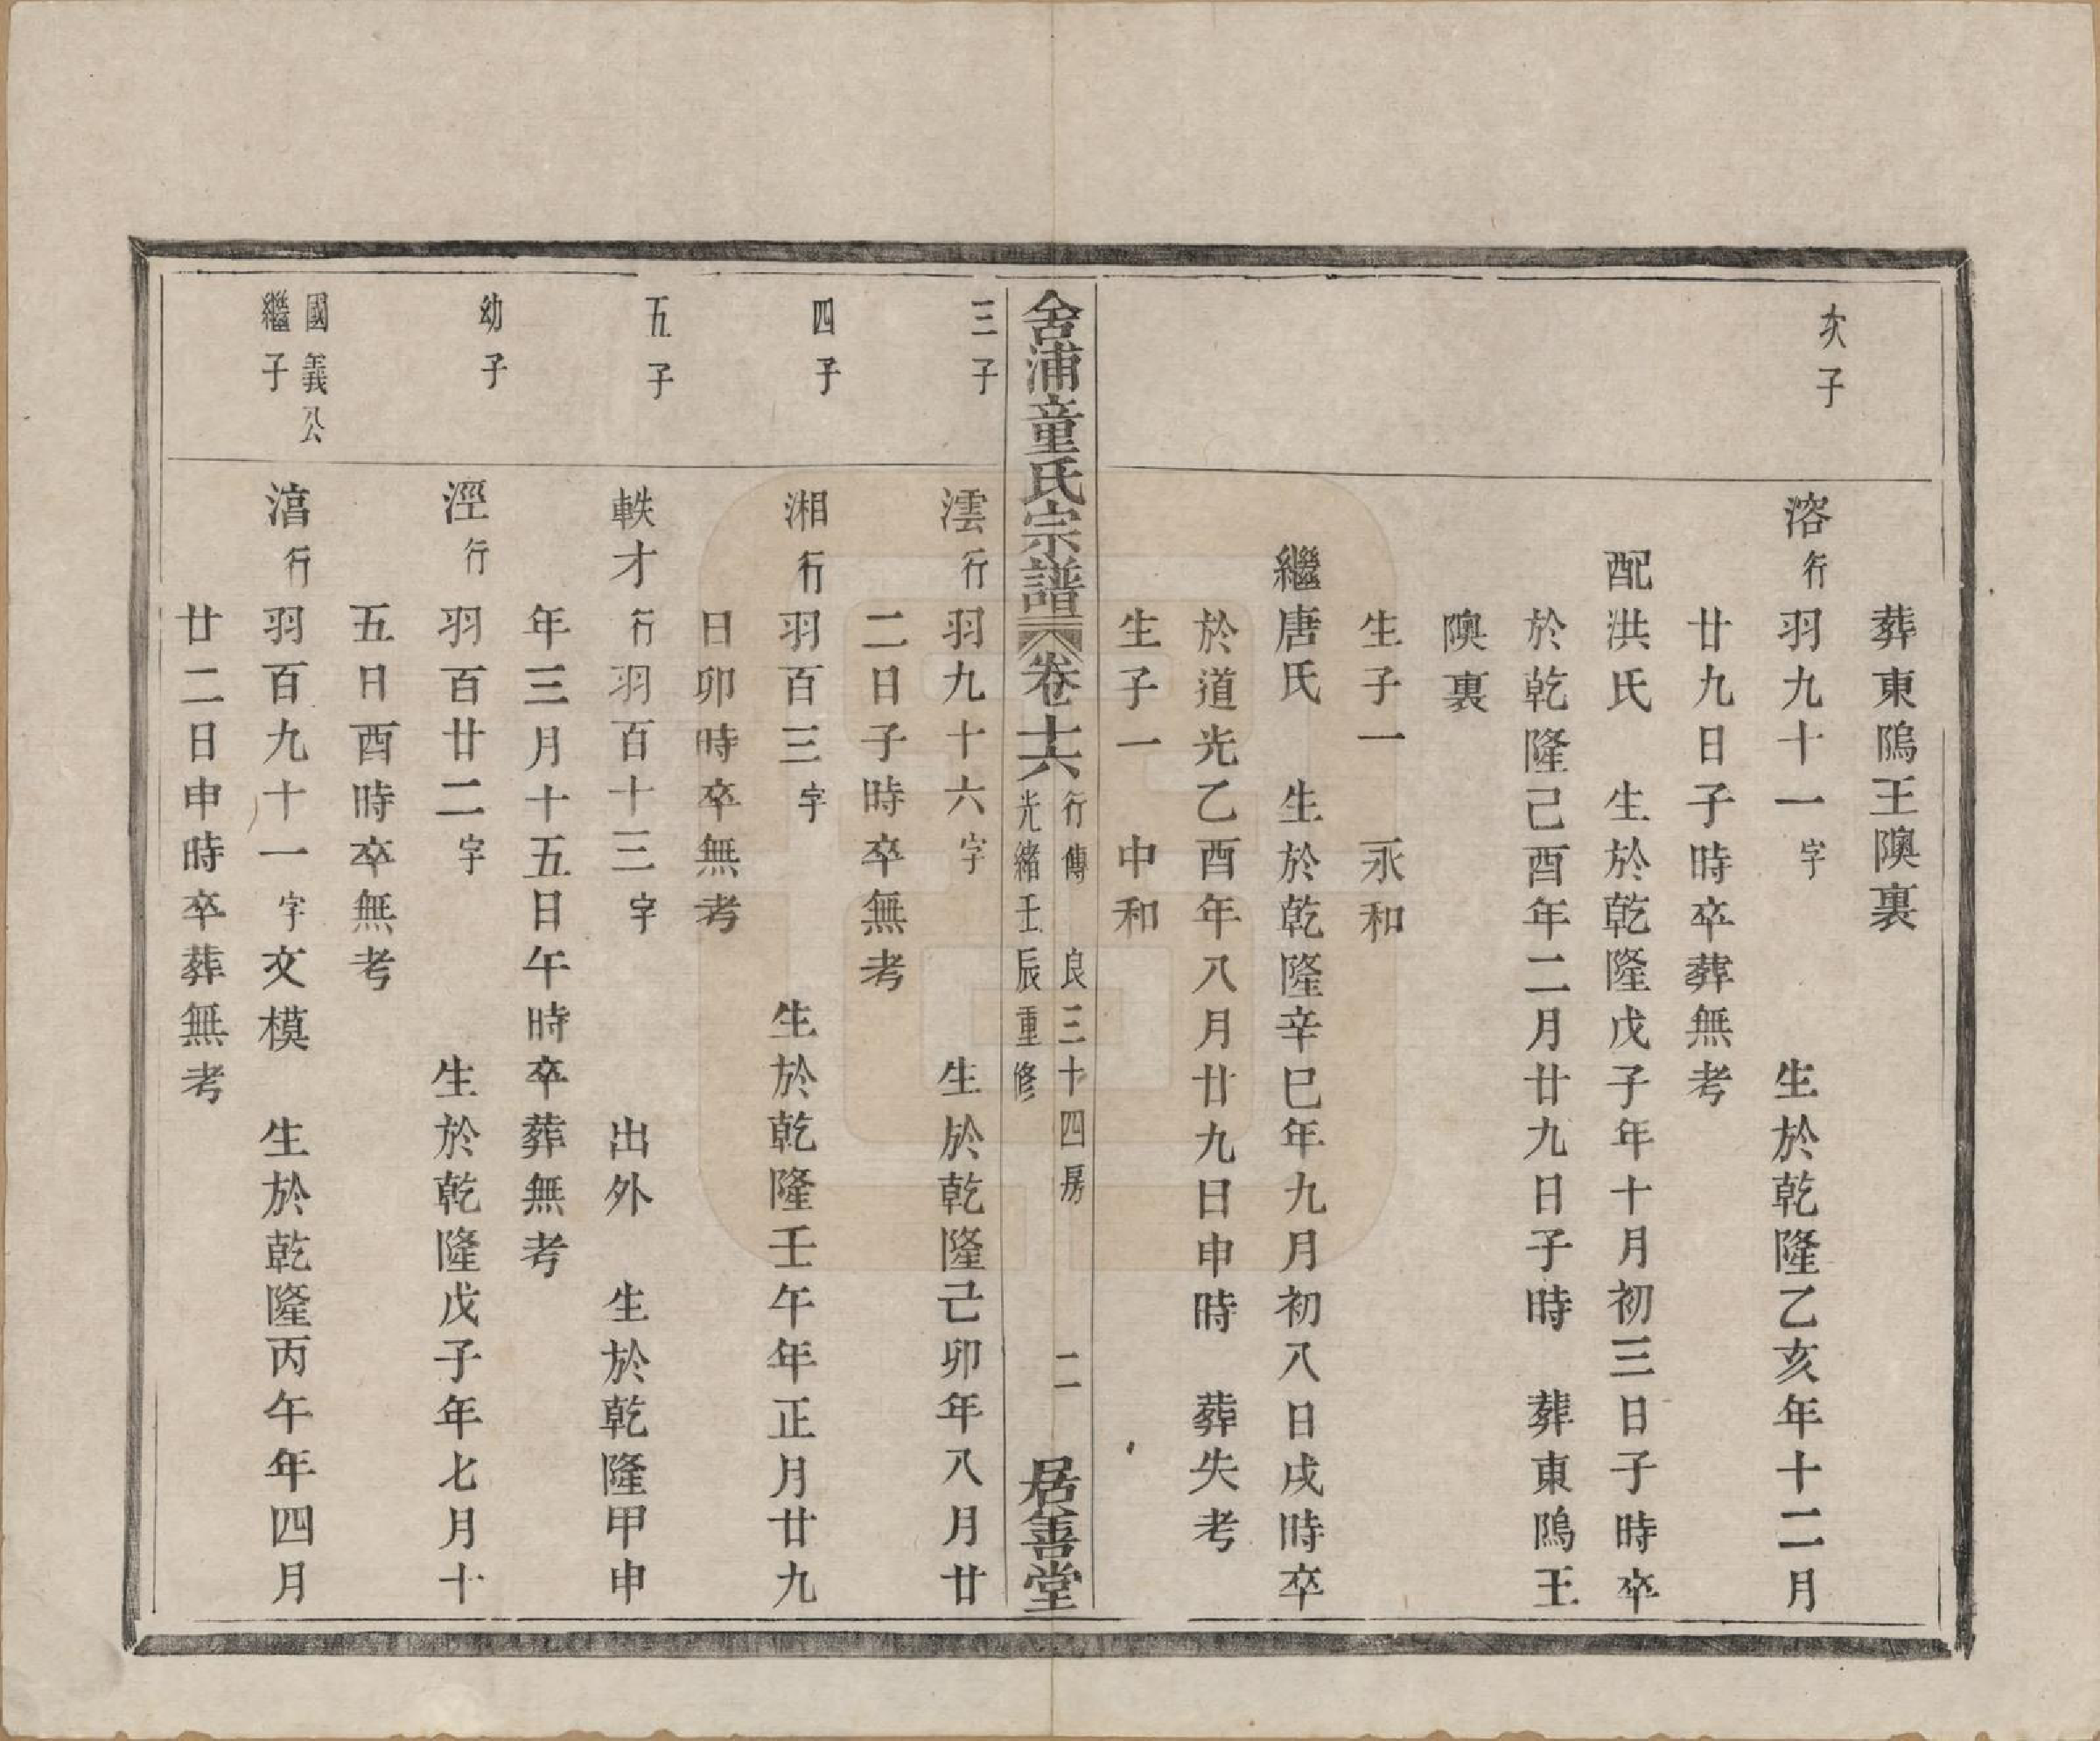 葬東隖王隩裏
次子
溶行羽九十一字　生於乾隆乙亥年十二月
廿九日子時卒葬無考
配洪氏　生於乾隆戊子年十月初三日子時卒
於乾隆己酉年二月廿九日子時　葬東隖王
隩裏
生子一　永和
繼唐氏　生於乾隆辛巳年九月初八日戌時卒
於道光乙酉年八月廿九日申時　葬失考
生子一　中和
舍浦童氏宗譜　卷十六
行傳　良三十四房
光緒壬辰重修
二
居善堂
三子
澐行羽九十六字　生於乾隆己卯年八月廿
二日子時卒無考
四子
湘行羽百三字　生於乾隆壬午年正月廿九
日卯時卒無考
五子
軼才行羽百十三字　出外　生於乾隆甲申
年三月十五日午時卒葬無考
幼子
涇行羽百廿二字　生於乾隆戊子年七月十
五日酉時卒無考
國義公
繼子
行羽百九十一字文模　生於乾隆丙午年四月
廿二日申時卒葬無考